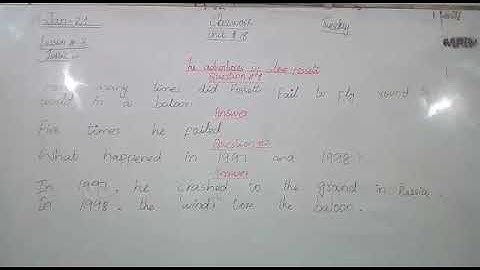 Jan-21 Classwork Tuesday
Lesson # 2 Unit # 8
The adventures in
Question #1
many times did Fossett fail to fly round
world in a baloon
Answer
Five times he failed
Question #2
What happened in 1997 and 1998?
Answer
In 1997, he crashed to the ground in Russia.
In 1998, the wind tore the baloon.